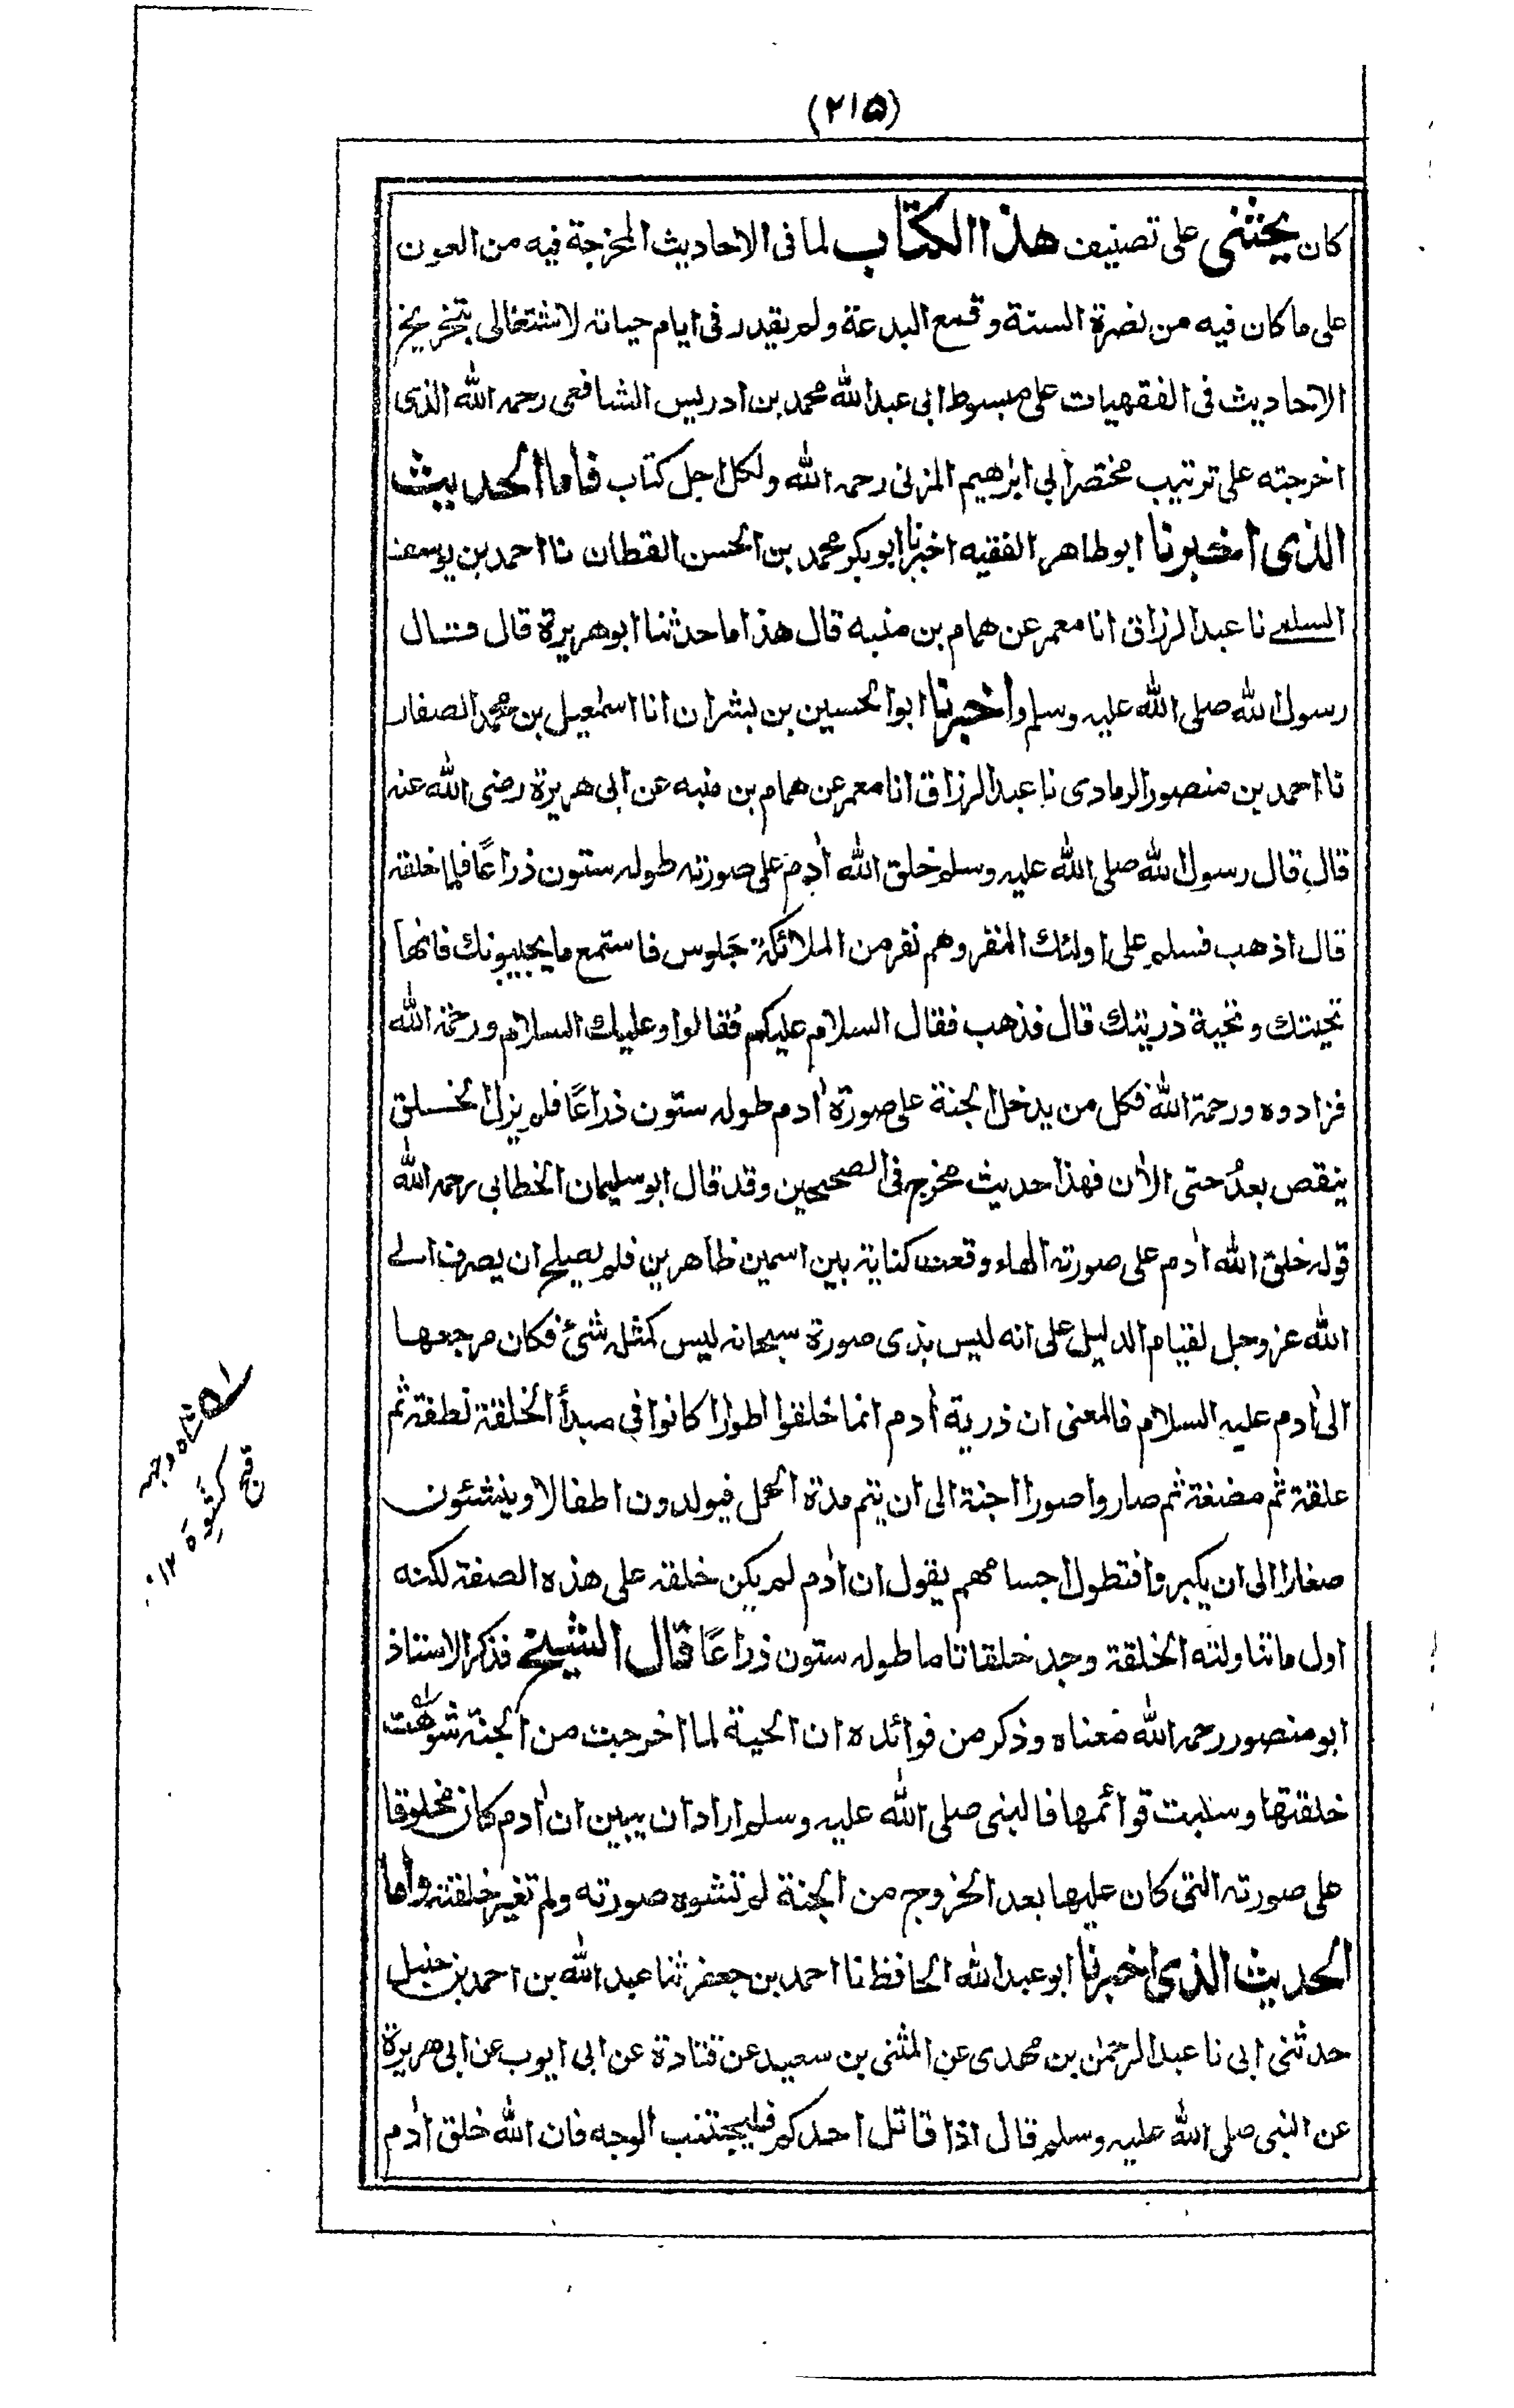 (٢١٥)
كان يحثنى على تصنيف هذا الكتاب لما فى الاحاديث المخرجة فيه من العون
على ما كان فيه من نصرة السنة وقمع البدعة ولم يقدر فى ايام حياته لاشتغالى بتخريج
الاحاديث فى الفقهيات على مبسوط ابى عبد الله محمد بن ادريس الشافعى رحمه الله الذى
اخرجته على ترتيب مختصر ابى ابرٰهيم المزنى رحمه الله ولكل اجل كتاب فاما الحديث
الذى اخبرنا ابو طاهر الفقيه اخبرنا ابو بكر محمد بن الحسن القطان نا احمد بن يوسف
السلمے نا عبد الرزاق انا معمر عن همام بن منبه قال هذا ما حدثنا ابو هريرة قال قال
رسول الله صلى الله عليه وسلم واخبرنا ابو الحسين بن بشران انا اسمٰعيل بن محمد الصفار
نا احمد بن منصور الرمادى نا عبد الرزاق انا معمر عن همام بن منبه عن ابى هريرة رضى الله عنه
قال قال رسول الله صلى الله عليه وسلم خلق الله اٰدم على صورته طوله ستون ذراعًا فلما خلقه
قال اذهب فسلم على اولئك النفر وهم نفر من الملائكة جَلوس فاستمع ما يجيبونك فانها
تحيتك وتحية ذريتك قال فذهب فقال السلام عليكم فقالوا وعليك السلام ورحمة الله
فزادوه ورحمة الله فكل من يدخل الجنة على صورة اٰدم طوله ستون ذراعًا فلم يزل الخلق
ينقص بعدُ حتى الاٰن فهذا حديث مخرج فى الصحيحين وقد قال ابو سليمان الخطابى رحمه الله
قوله خلق الله اٰدم على صورته الهاء وقعت كناية بين اسمين ظاهرين فلم يصلح ان يصرف الے
الله عز وجل لقيام الدليل على انه ليس بذى صورة سبحانه ليس كمثله شئ فكان مرجعها
الى اٰدم عليه السلام فالمعنى ان ذرية اٰدم انما خلقوا اطوارا كانوا فى مبدأ الخلقة نطفة ثم
علقة ثم مضغة ثم صاروا صورا اجنة الى ان يتم مدة الحمل فيولدون اطفالا وينشئون
صغارا الى ان يكبروا فتطول اجسامهم يقول ان اٰدم لم يكن خلقه على هذه الصفة لكنه
اول ما تناولته الخلقة وجد خلقا تاما طوله ستون ذراعًا قال الشيخ فذكر الاستاذ
ابو منصور رحمه الله معناه وذكر من فوائده ان الحية لما اخرجت من الجنة شوهت
خلقتها وسلبت قوائمها فالنبى صلى الله عليه وسلم اراد ان يبين ان اٰدم كان مخلوقا
على صورته التى كان عليها بعد الخروج من الجنة لم تشوه صورته ولم تغير خلقته واما
الحديث الذى اخبرنا ابو عبد الله الحافظ نا احمد بن جعفر ثنا عبد الله بن احمد بن حنبل
حدثنى ابى نا عبد الرحمٰن بن مهدى عن المثنى بن سعيد عن قتادة عن ابى ايوب عن ابى هريرة
عن النبى صلى الله عليه وسلم قال اذا قاتل احدكم فليجتنب الوجه فان الله خلق اٰدم
شاه وجهه
قبح كشوه ١٢